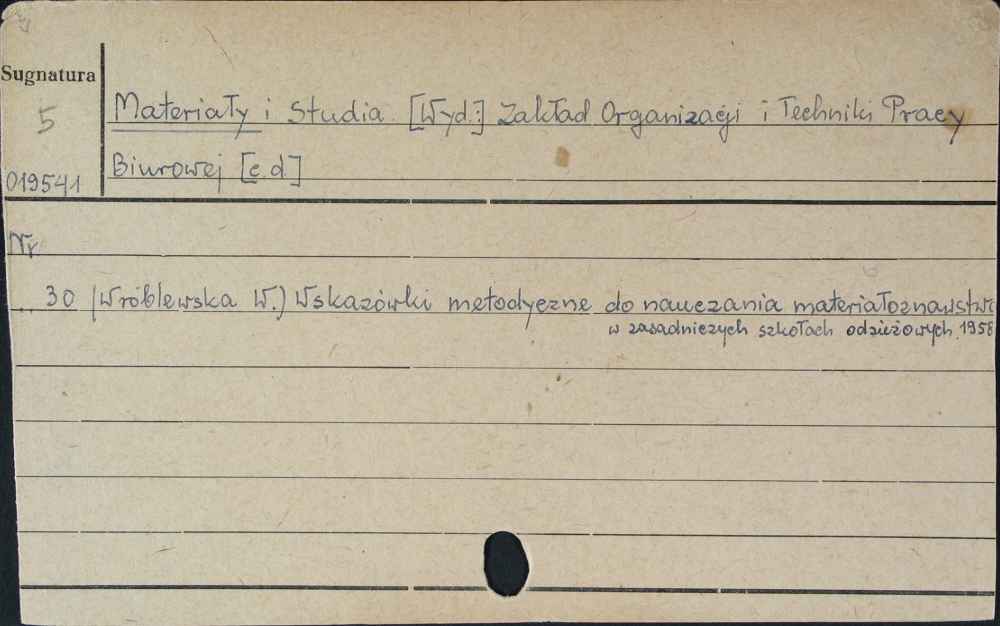 Sugnatura
5
Materiały i Studia [Wyd:] Zakład Organizacji i Techniki Pracy
Biurowej [c.d.]
019541
Nr
30 (Wróblewska W.) Wskazówki metodyczne do nauczania materiałoznawstwa
w zasadniczych szkołach odzieżowych. 1958